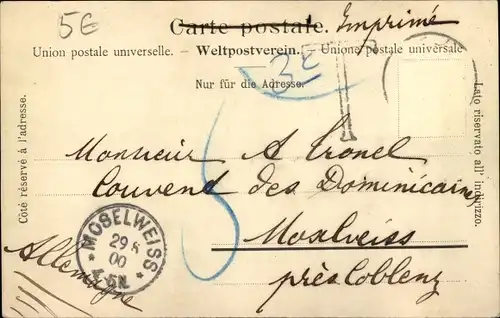 5€
Carte postale. Imprimé
Union postale universelle. - Weltpostverein. - Unione postale universale
3€
Nur für die Adresse.
T
Côté réservé à l'adresse.
Lato riservato all' indirizzo.
5
Monsieur A Cronel
Couvend des Dominicains
Moselweiss
près Coblenz
Allemagne
MOSELWEISS
29 8
00